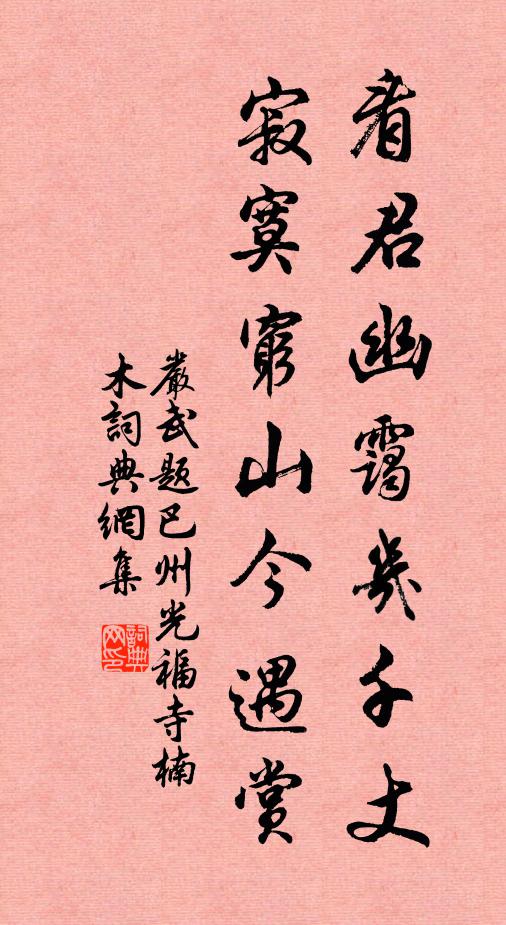 看君幽靄幾千丈
寂寞窮山今遇賞
嚴武題巴州光福寺楠
木詞典網集
詞典
网印